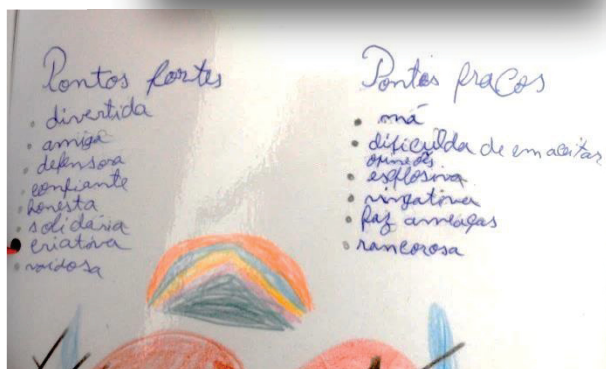 Pontos fortes
divertida
amiga
defensora
confiante
honesta
solidária
criativa
vaidosa
Pontos fracos
má
dificulda de em aceitar
opineõs
explosiva
vingativa
faz ameaças
rancorosa